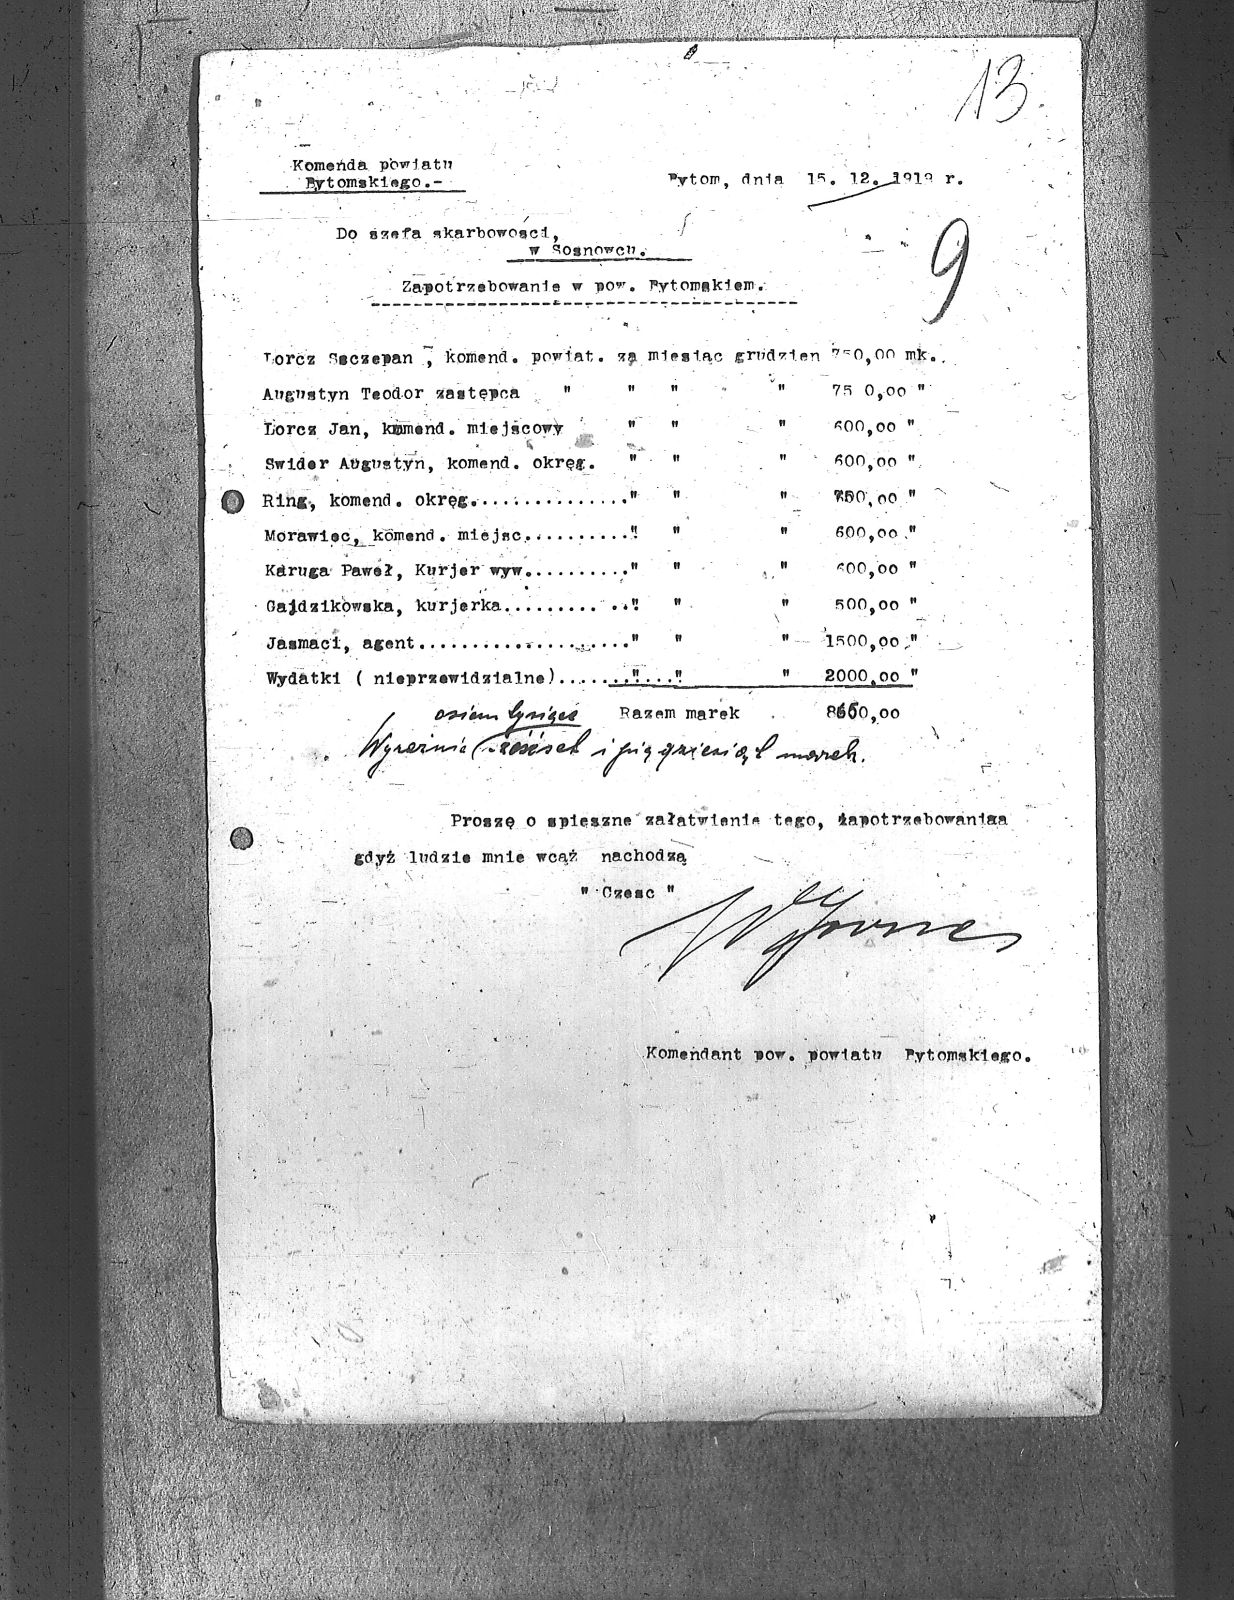 13
Komenda powiatu
Bytomskiego.-
Bytom, dnia 15. 12. 1919 r.
Do szefa skarbowosci,
w Sosnowcu.
9
Zapotrzebowanie w pow. Bytomskiem.
Lorcz Szczepan , komend. powiat. za miesiąc grudzien 750,00 mk.
Augustyn Teodor zastępca " " " " 75 0,00 "
Lorcz Jan, komend. miejscowy " " " 600,00 "
Swider Augustyn, komend. okręg. " " " 600,00 "
Ring, komend. okręg............... " " " 750,00 "
Morawiec, komend. miejsc.......... " " " 600,00 "
Karuga Paweł, Kurjer wyw.......... " " " 600,00 "
Gajdzikowska, kurjerka......... ..." " " 500,00 "
Jasmaci, agent.................... " " " 1500,00 "
Wydatki ( nieprzewidzialne)......."...." " 2000,00 "
osiem tysięcy Razem marek 8650,00
Wyraźnie sześćset i pięqdziesiąt marek.
Proszę o spieszne załatwienie tego, zapotrzebowaniaa
gdyż ludzie mnie wcąż nachodzą
" Czesc "
Komendant pow. powiatu Bytomskiego.